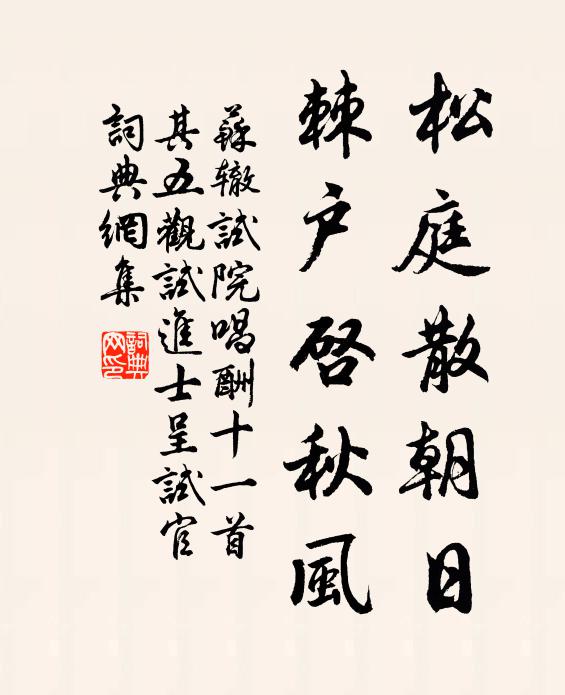 松庭散朝日
棘户啓秋風
蘇辙試院唱酬十一首
其五觀試進士呈試官
詞典網集
詞典
网印